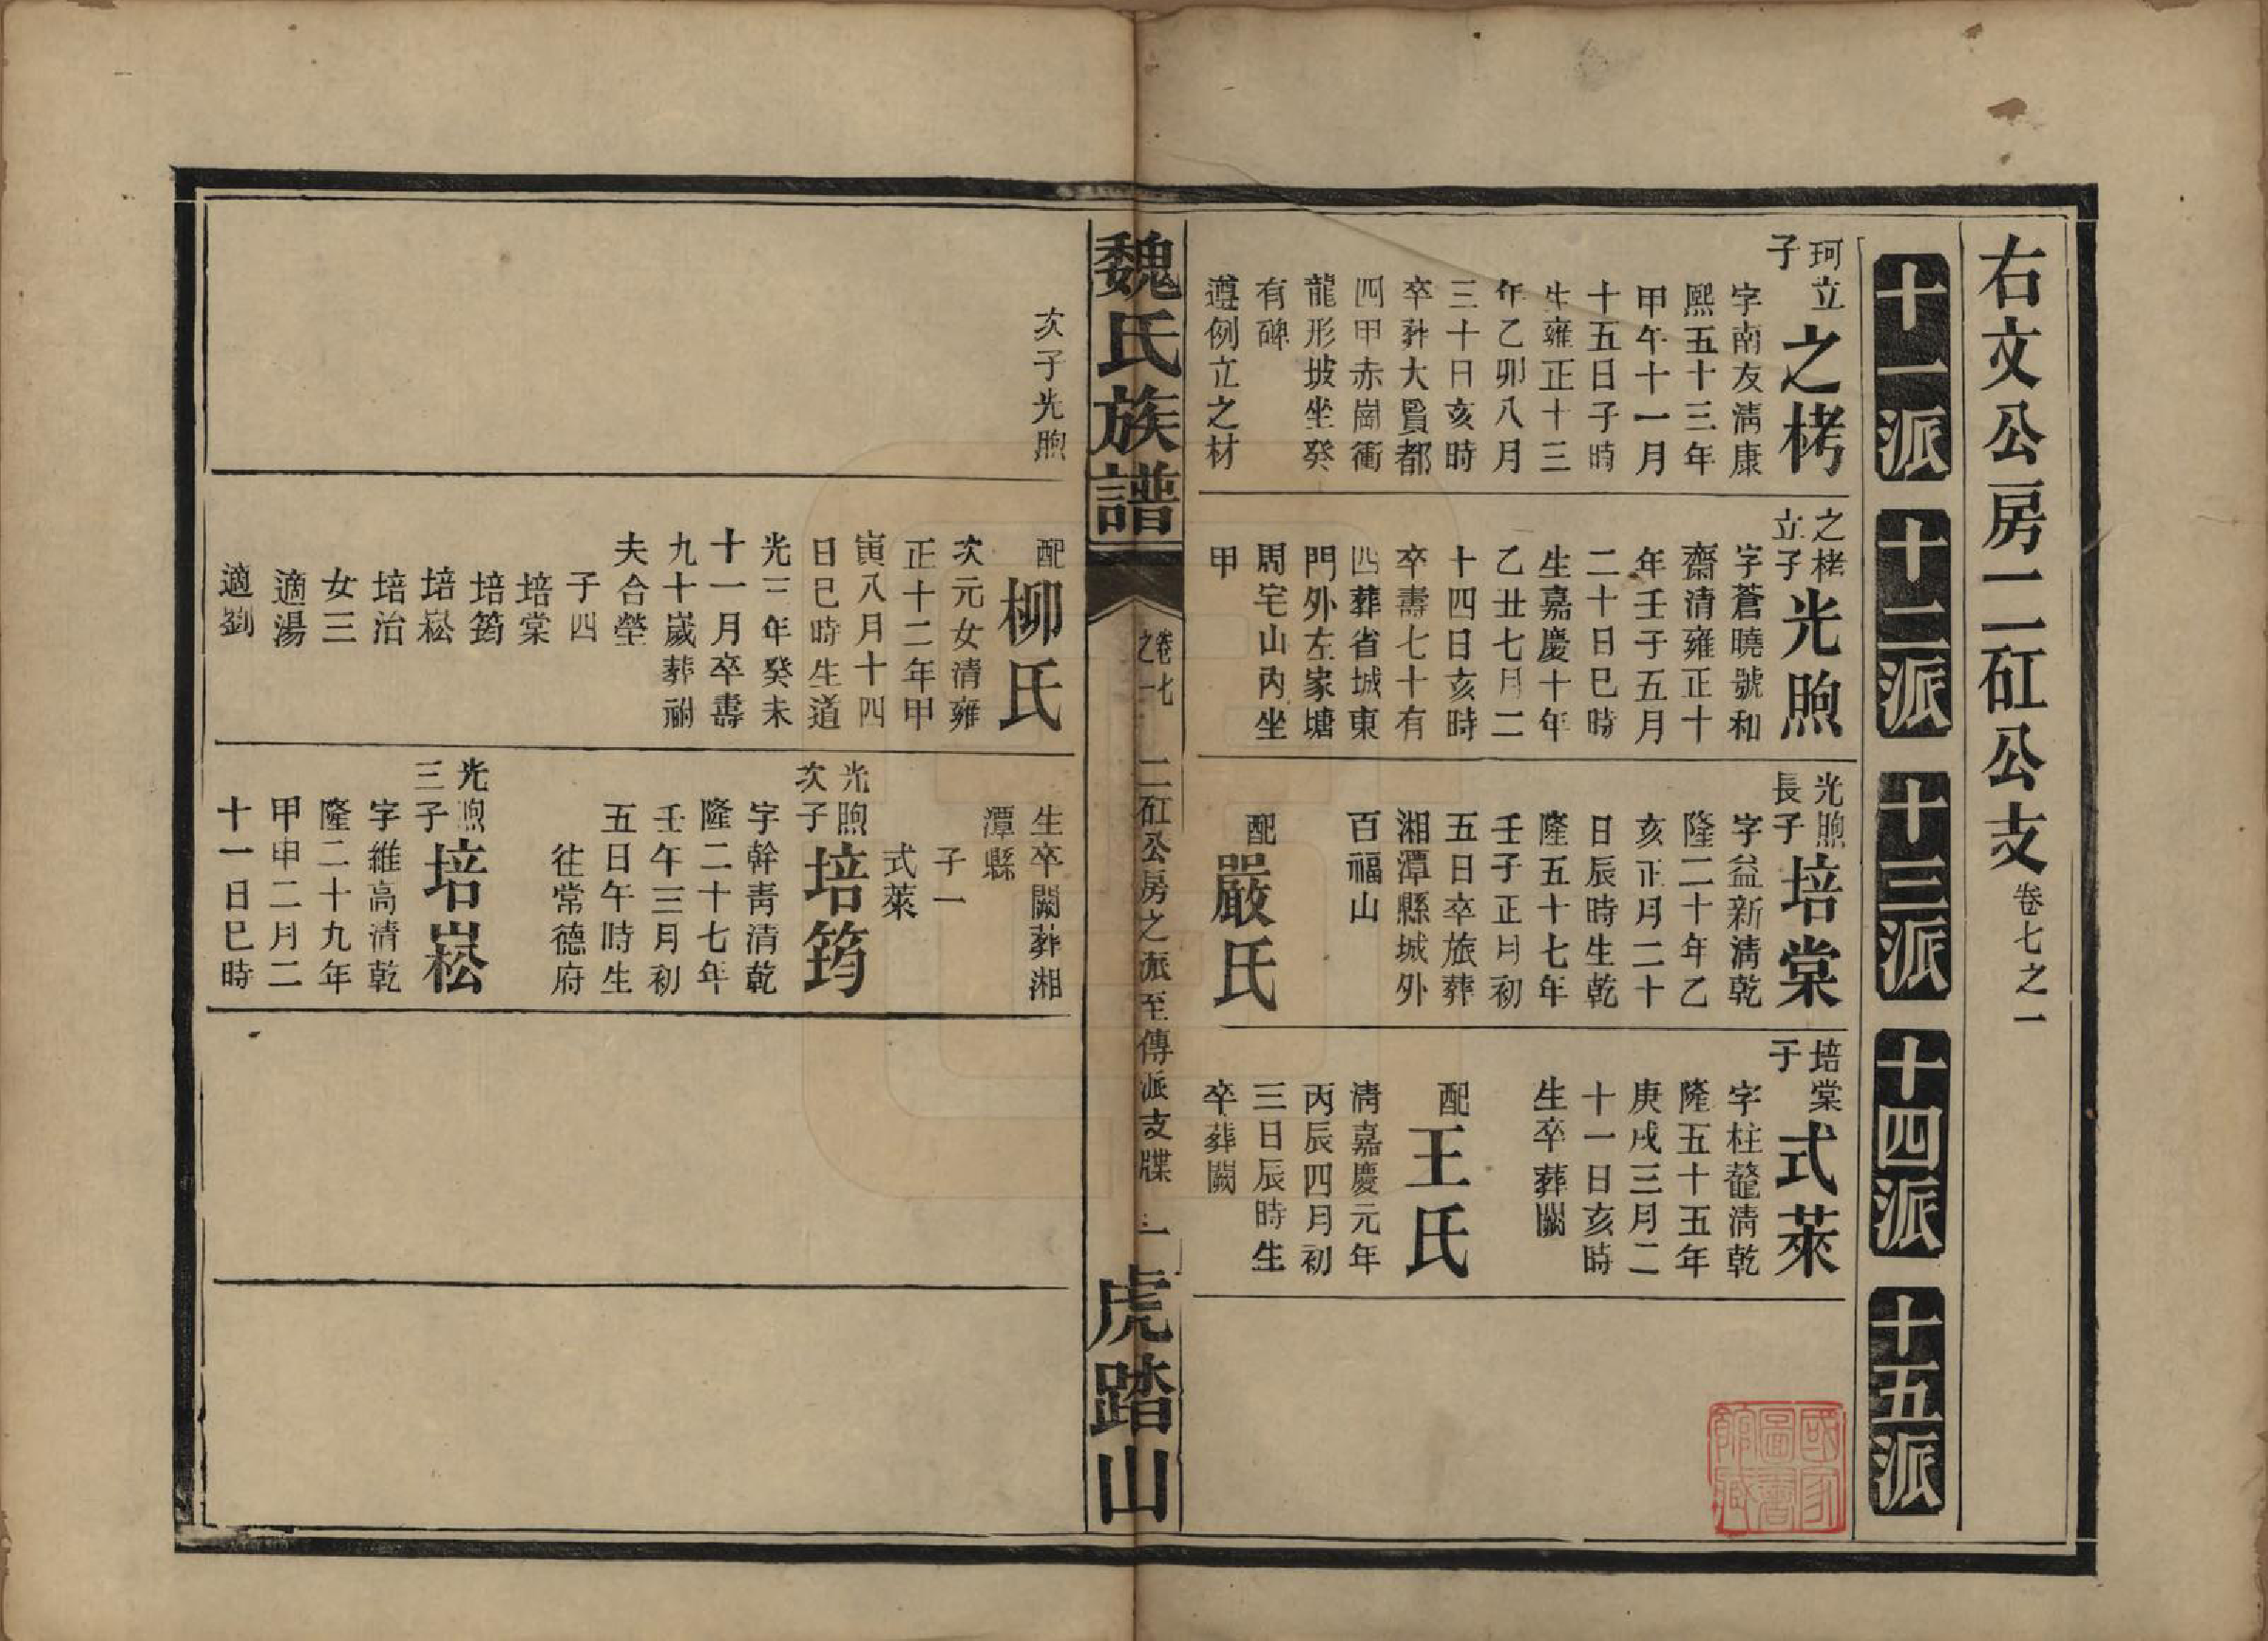 右文公房二矼公支 卷七之一
十一派
十二派
十三派
十四派
十五派
珂立
子
之栲
字南友清康
熙五十三年
甲午十一月
十五日子時
生雍正十三
年乙卯八月
三十日亥時
卒葬大賢都
四甲赤崗衝
龍形坡坐癸
有碑
遵例立之材
次子光煦
之栲
立子
光煦
字蒼曉號和
齋清雍正十
年壬子五月
二十日巳時
生嘉慶十年
乙丑七月二
十四日亥時
卒壽七十有
四葬省城東
門外左家塘
周宅山內坐
甲
配
柳氏
次元女清雍
正十二年甲
寅八月十四
日巳時生道
光三年癸未
十一月卒壽
九十歲葬祔
夫合塋
子四
培棠
培筠
培崧
培治
女三
適湯
適劉
光煦
長子
培棠
字益新清乾
隆二十年乙
亥正月二十
日辰時生乾
隆五十七年
壬子正月初
五日卒旅葬
湘潭縣城外
百福山
配
嚴氏
生卒闕葬湘
潭縣
子一
式萊
光煦
次子
培筠
字幹青清乾
隆二十七年
壬午三月初
五日午時生
往常德府
光煦
三子
培崧
字維高清乾
隆二十九年
甲申二月二
十一日巳時
培棠
子
式萊
字柱龍清乾
隆五十五年
庚戌三月二
十一日亥時
生卒葬闕
配
王氏
清嘉慶元年
丙辰四月初
三日辰時生
卒葬闕
魏氏族譜
卷七
之一
二矼公房之派至傳派支牒
一
虎踏山
國家
圖書
館藏